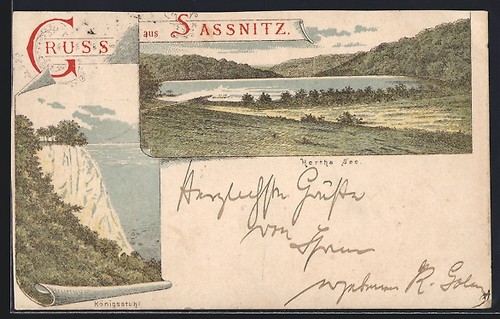 GRUSS aus SASSNITZ.
Hertha See.
Herzlichste Grüße
von Ihrem
R.
Königsstuhl